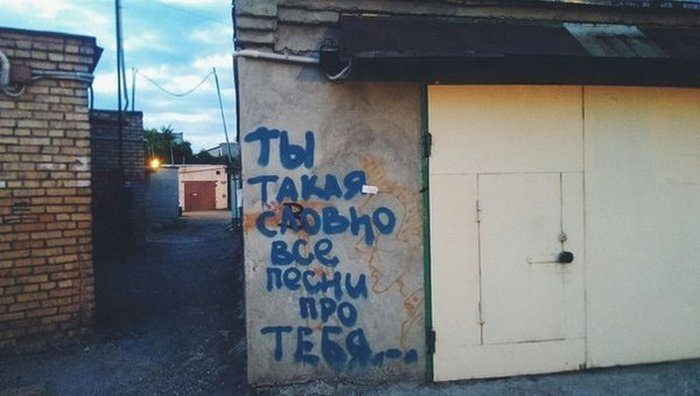 ТЫ
ТАКАЯ
СЛОВНО
ВСЕ
ПЕСНИ
ПРО
ТЕБЯ...